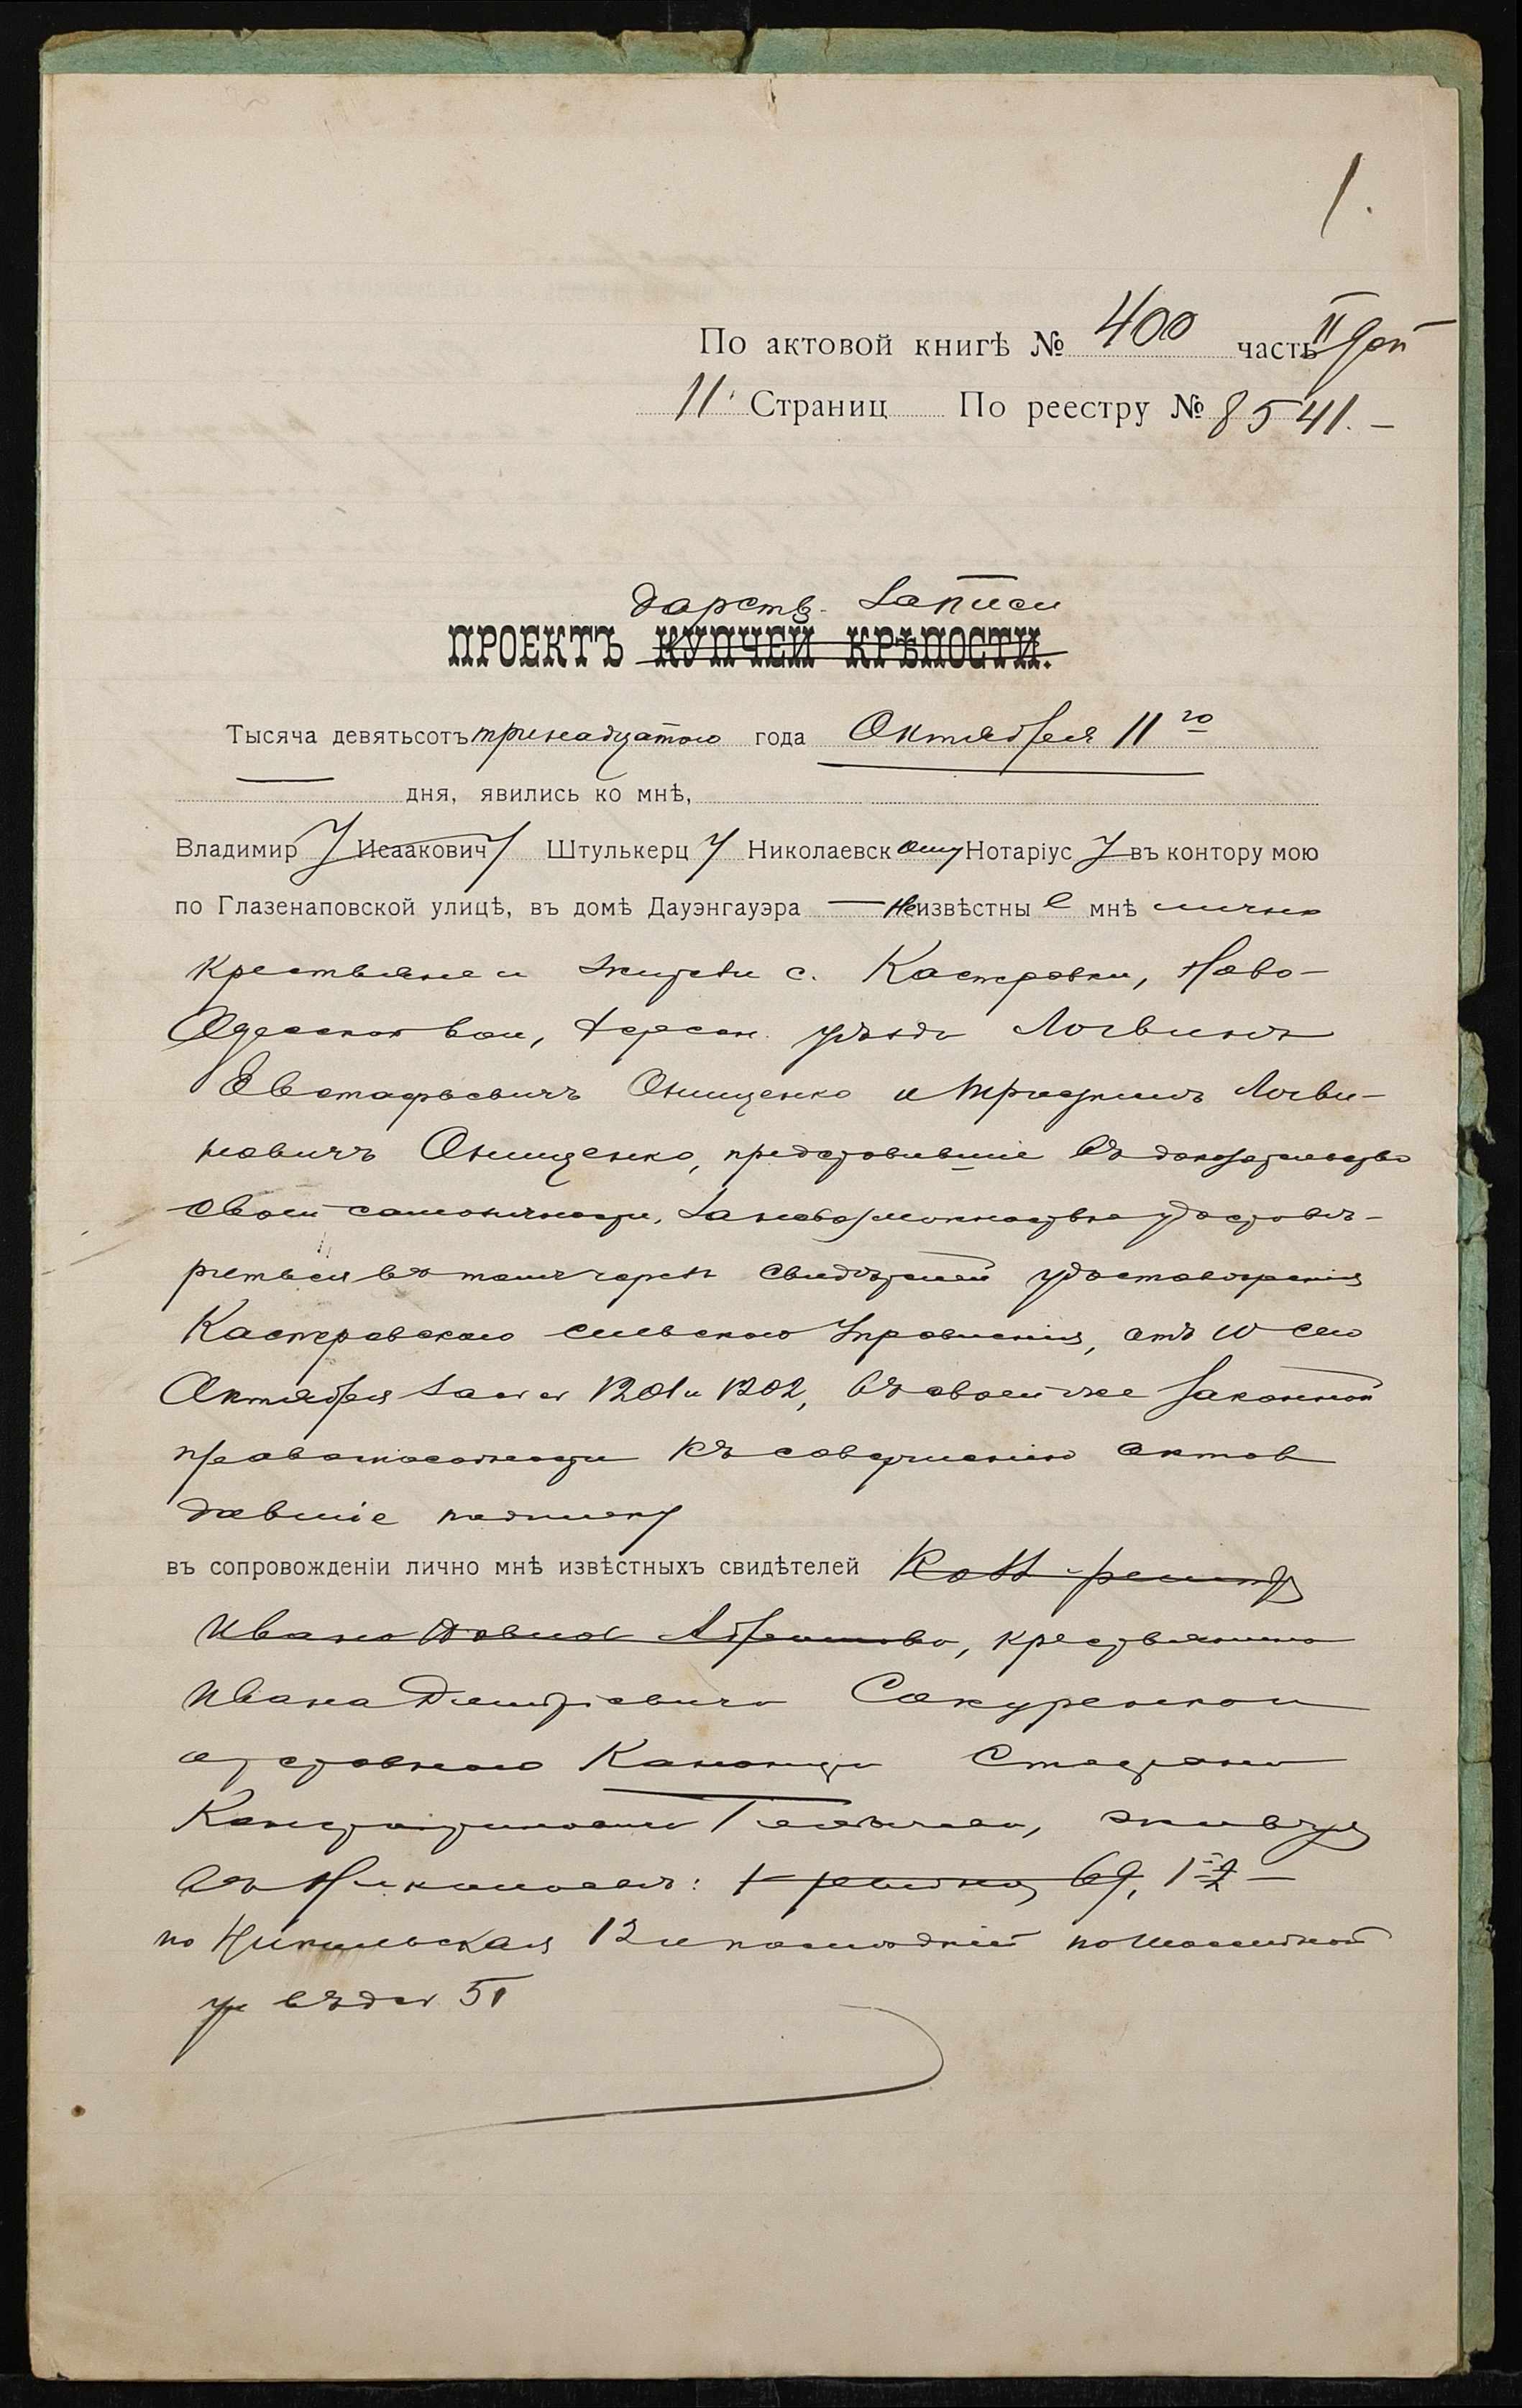 1.
По актовой книгѣ № 400 часть II доп
11. Страниц По реестру № 8541. —
дарств. записи
ПРОЕКТЪ КУПЧЕЙ КРѢПОСТИ.
Тысяча девятьсотъ тринадцатого года Октября 11го
дня, явились ко мнѣ,
Владимиру Исааковичу Штулькерцу Николаевскому Нотаріусу въ контору мою
по Глазенаповской улицѣ, въ домѣ Дауэнгауэра — неизвѣстные мнѣ лично
крестьяне и жители с. Кастровки, Ново-
Одесской вол, Херсон. уѣзда Логвинъ
Евстафьевичъ Онищенко и Трифонъ Логви-
новичъ Онищенко, представившіе въ доказательство
своей самоличности, за невозможностью удостовѣ-
риться въ томъ чрезъ свидѣтелей удостовѣренія
Кастровского сельского Управленія, отъ 10 сего
Октября за №№ 1201 и 1202, въ своей же законной
правоспособности къ совершенію актов
давшіе подписку
въ сопровожденіи лично мнѣ извѣстныхъ свидѣтелей
Ивана крестьянина
Ивана Дмитріевича
отставного Стефана
Константиновича живущ
въ Николаевѣ: 69, 1й
по Никольская 12 и послѣдній по
ул въ д № 51